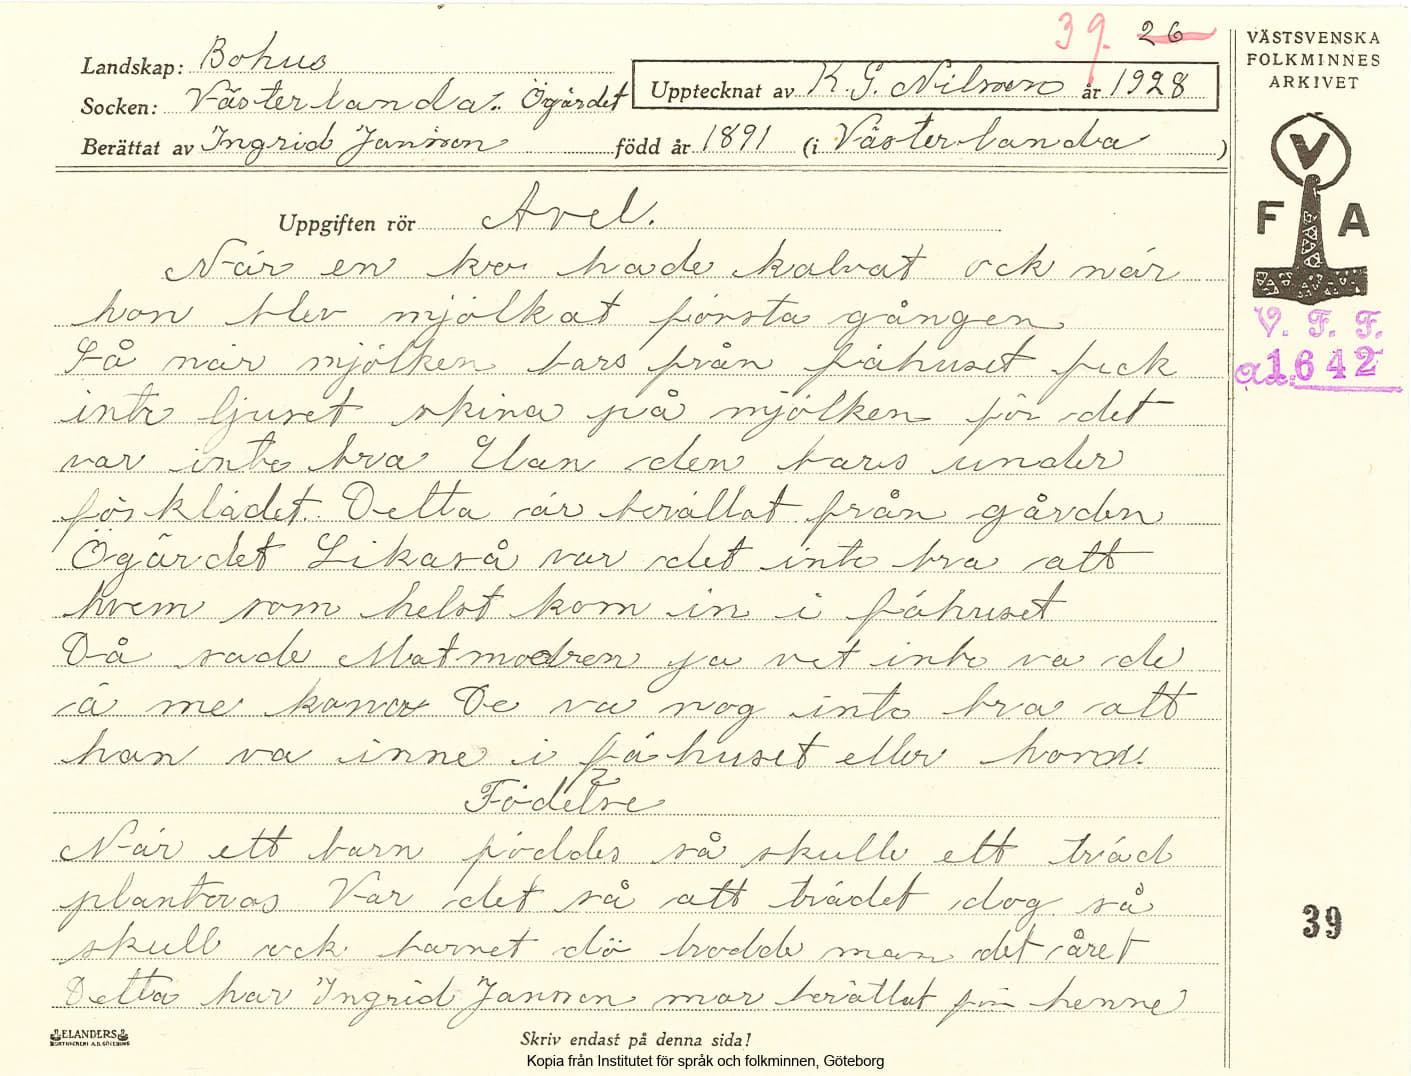 39. 26
Landskap: Bohus
Socken: Västerlanda. Ögärdet
Upptecknat av K. G. Nilsson år 1928
Berättat av Ingrid Jansson född år 1891 (i Västerlanda)
Uppgiften rör Avel.
När en ko hade kalvat ock när
hon blev mjölkat första gången
Så när mjölken bars från fähuset fick
inte ljuset skina på mjölken för det
var inte bra Utan den bars under
förklädet. Detta är berättat från gården
Ögärdet Likaså var det inte bra att
hvem som helst kom in i fähuset
Då sade Matmodren ja vet inte va de
ä me kona De va nog inte bra att
han va inne i fähuset eller hon!
Födelse
När ett barn föddes så skulle ett träd
planteras Var det så att trädet dog så
skull ock barnet dö trodde man det året
Detta har Ingrid Jansson mor berättat för henne
ELANDERS
Skriv endast på denna sida!
Kopia från Institutet för språk och folkminnen, Göteborg
VÄSTSVENSKA
FOLKMINNES
ARKIVET
V
F A
V. F. F.
1642
39